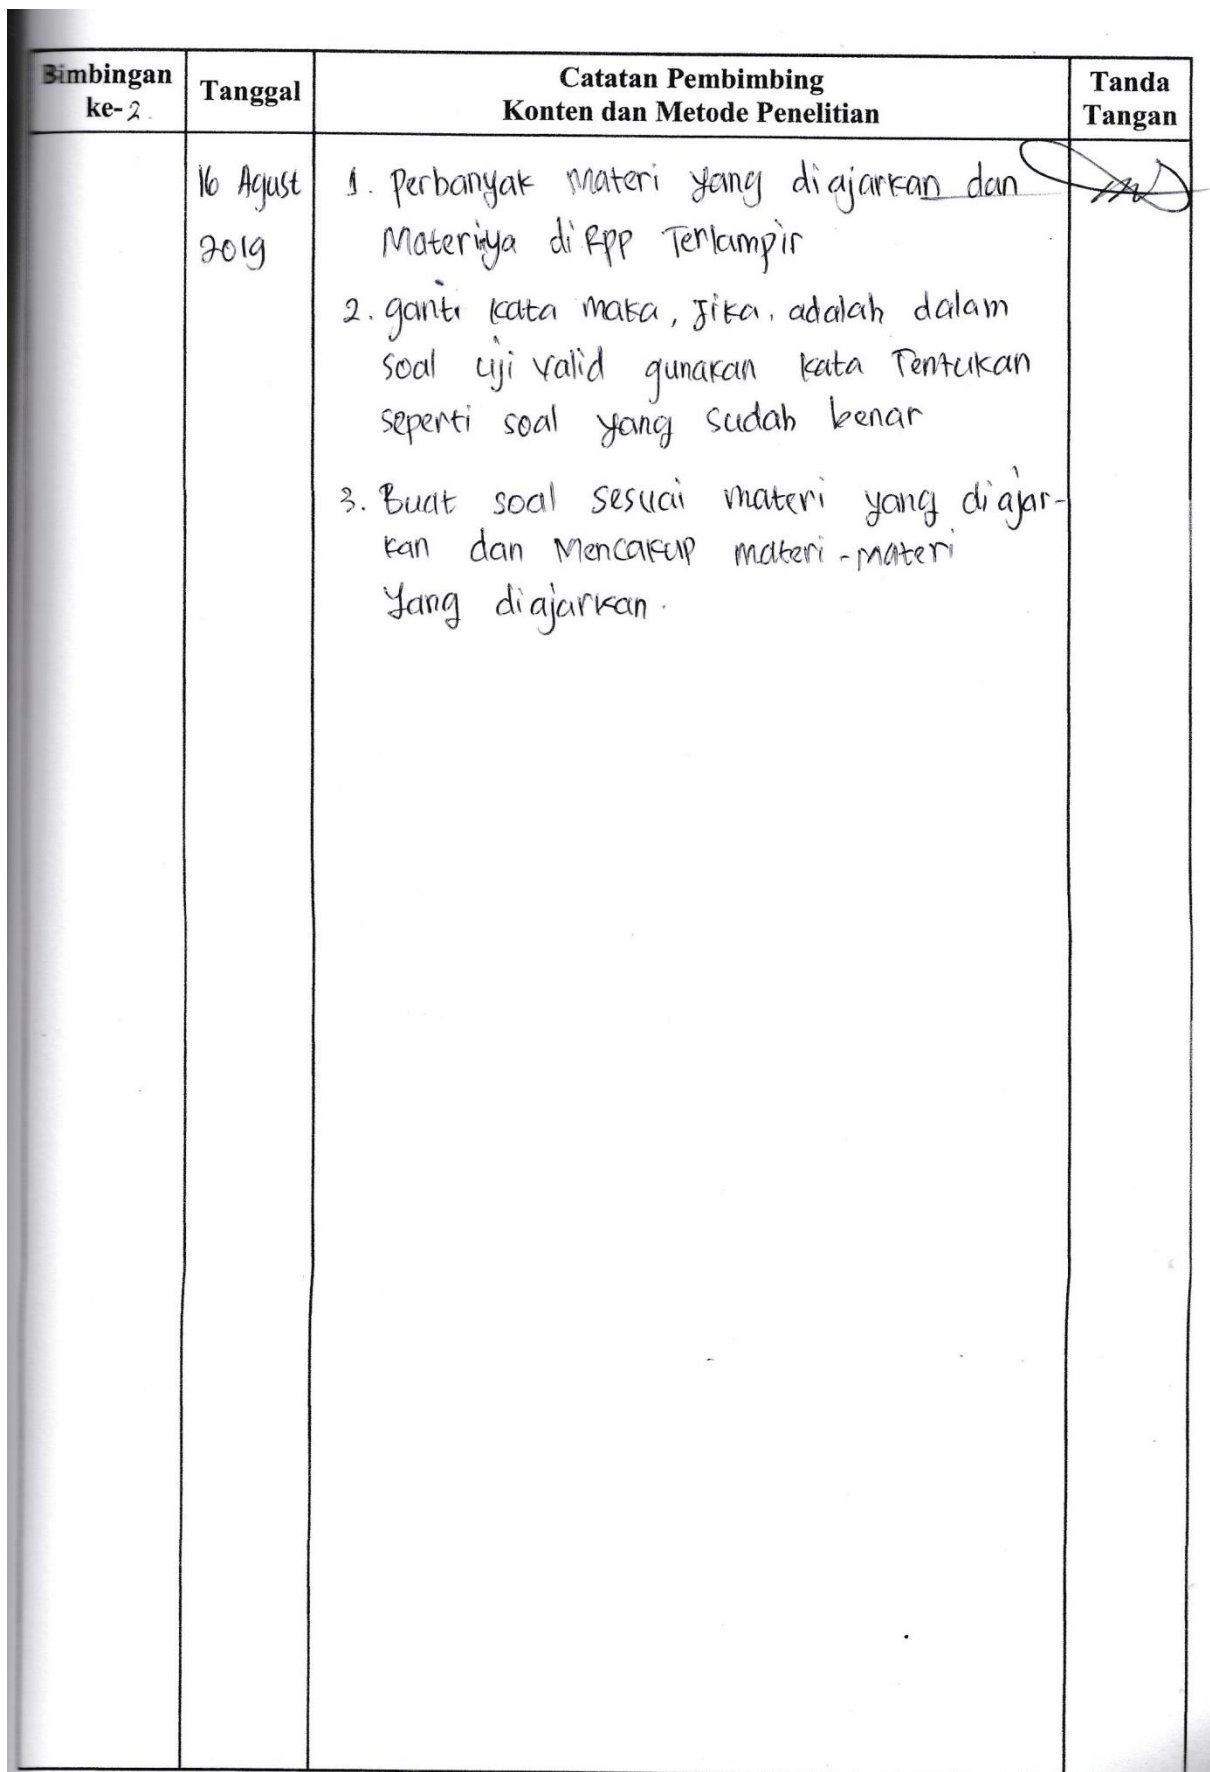 Bimbingan
ke-2.
Tanggal
Catatan Pembimbing
Konten dan Metode Penelitian
Tanda
Tangan
16 Agust
2019
1. Perbanyak materi yang diajarkan dan
Materiya di RPP Terlampir
2. ganti kata maka, Jika, adalah dalam
soal uji valid gunakan kata Tentukan
seperti soal yang sudah benar
3. Buat soal sesuai materi yang diajar-
kan dan Mencakup materi-materi
Yang diajarkan.